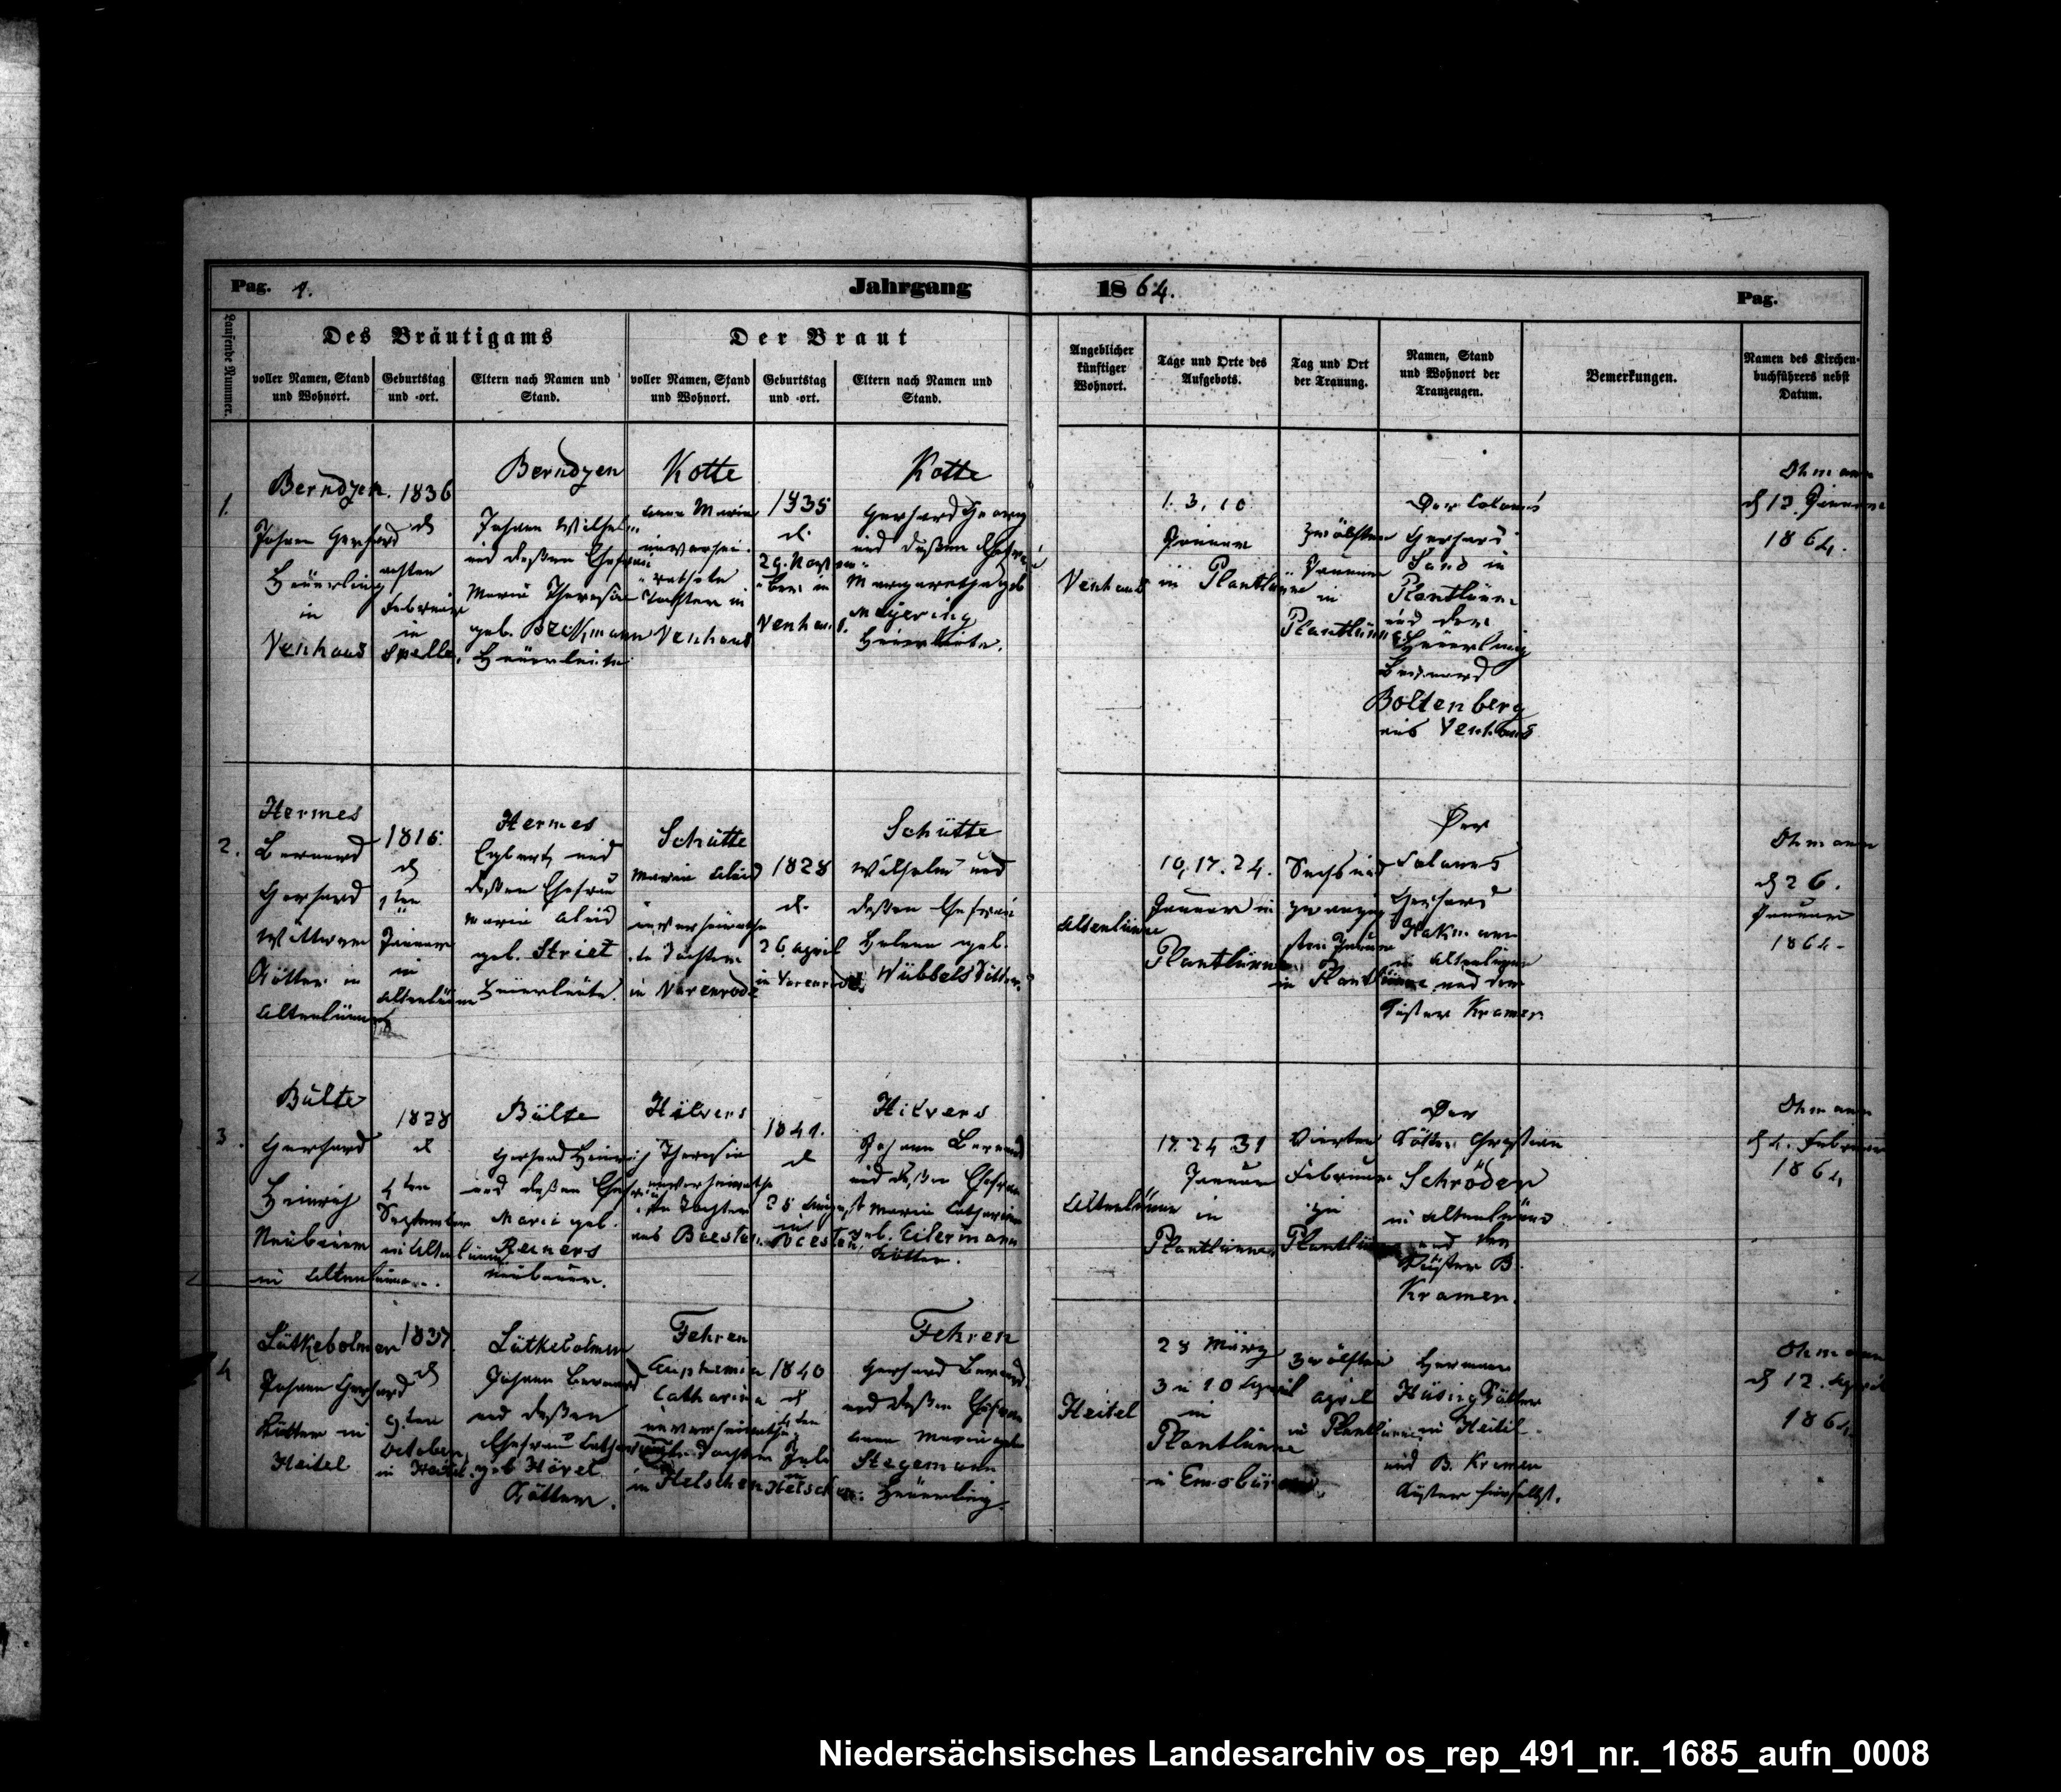 Pag. 1.
Jahrgang
1864.
Pag.
Laufende Nummer.
Des Bräutigams
Der Braut
voller Namen, Stand
und Wohnort.
Geburtstag
und -ort.
Eltern nach Namen und
Stand.
voller Namen, Stand
und Wohnort.
Geburtstag
und -ort.
Eltern nach Namen und
Stand.
Angeblicher
künftiger
Wohnort.
Tage und Orte des
Aufgebots.
Tag und Ort
der Trauung.
Namen, Stand
und Wohnort der
Trauzeugen.
Bemerkungen.
Namen des Kirchen-
buchführers nebst
Datum.
1.
Berndzen
Johann Gerhard
Heuerling
in
Venhaus
1836
d
achten
Februar
in
Spelle.
Berndzen
Johann Wilhelm
und deßen Ehefrau
Maria Theresia
geb. Beckmann
Heuerleute
Kotte
Anna Maria
unverhei-
rathete
Tochter in
Venhaus
1835
d.
29. Novem-
ber in
Venhaus.
Kotte
Gerhard Georg
und deßen Ehefrau
Margaretha geb
Meyering
Heuerleute.
Venhaus
1. 3, 10
Januar
in Plantlünne
Zwölften
Januar
in
Plantlünne
Der Colonus
Gerhard
Sand in
Plantlünne
und der
Heuerling
Bernard
Boltenberg
aus Venhaus
Ohmann
d 12. Januar
1864.
2.
Hermes
Bernard
Gerhard
Wittwer
Kötter in
Altenlünne
1816
d
1ten
Januar
in
Altenlünne
Hermes
Egbert und
deßen Ehefrau
Maria Aleid
geb. Striet
Heuerleute.
Schütte
Maria Aleid
unverheirathe-
te Tochter
in Varenrode
1828
d.
26. April
in Varenrode
Schütte
Wilhelm und
deßen Ehefrau
Helena geb.
Wübbels Kötter.
Altenlünne
10, 17. 24.
Januar in
Plantlünne
Sechs und
zwanzig
sten Januar
in Plantlünne
Der
Colonus
Gerhard
Hakmann
in Altenlünne
und der
Küster Kramer
Ohmann
d 26.
Januar
1864.
3.
Bülte
Gerhard
Heinrich
Neubauer
in Altenlünne.
1828
d
4ten
September
in Altenlünne
Bülte
Gerhard Heinrich
und deßen Ehefrau
Maria geb.
Reiners
Neubauer.
Hilvers
Theresia
unverheirathe-
te Tochter
aus Beesten
1841.
d
25 August
in
Beesten
Hilvers
Johann Bernard
und deßen Ehefrau
Maria Catharina
geb. Eilermann
Kötter.
Altenlünne
17. 24 31
Januar
in
Plantlünne
Vierten
Februar
zu
Plantlünne
Der
Kötter Christian
Schröder
in Altenlünne
und der
Küster B.
Kramer.
Ohmann
d 4. Februar
1864
4
Lütkebolmer
Johann Gerhard
Kötter in
Heitel
1837.
d
9.ten
October
in Heitel
Lütkebolmer
Johann Bernard
und deßen
Ehefrau Catharina
geb Hövel
Kötter.
Fehren
Euphemia
Catharina
unverheirathe-
te Tochter
in Helschen
1840
d
4ten
Juli
in
Helschen.
Fehren
Gerhard Bernard
und deßen Ehefrau
Anna Maria geb
Stegemann
Heuerling.
Heitel
28 März
3 u 10 April
in
Plantlünne
u Emsbüren
Zwölften
April
in Plantlünne
Hermann
Hüsing Kötter
in Heitel
und B. Kramer
Küster hierselbst.
Ohmann
d 12. April
1864.
Niedersächsisches Landesarchiv os_rep_491_nr._1685_aufn_0008